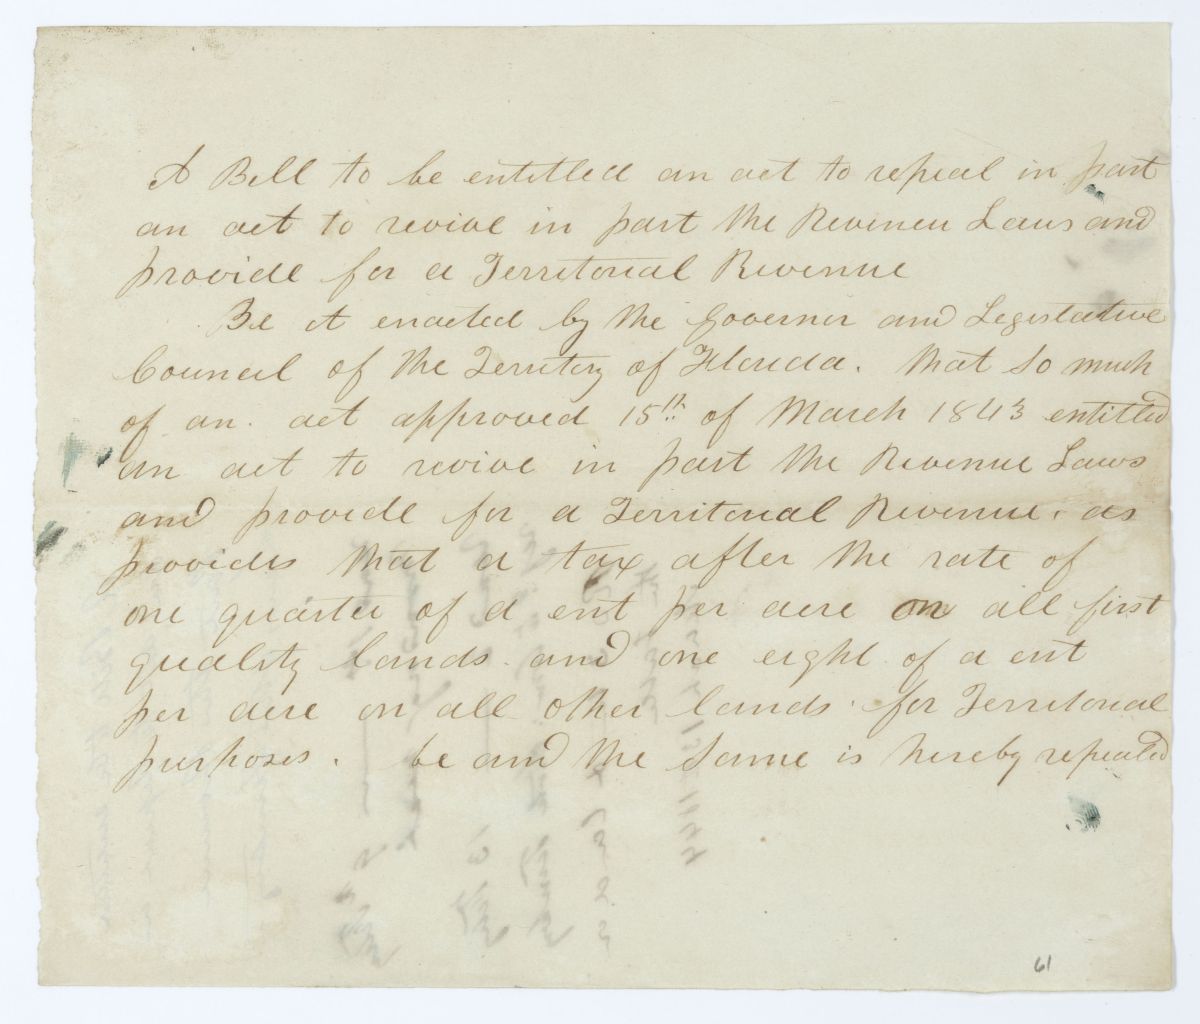 A Bill to be entitled an act to repeal in part
an act to revive in part the Revenue Laws and
provide for a Territorial Revenue
Be it enacted by the Governor and Legislative
Council of the Territory of Florida. that so much
of an act approved 15th of March 1843 entitled
an act to revive in part the Revenue Laws
and provide for a Territorial Revenue. as
provides that a tax after the rate of
one quarter of a cent per acre on all first
quality lands and one eight of a cent
per acre on all other lands for Territorial
purposes. be and the same is hereby repealed
61